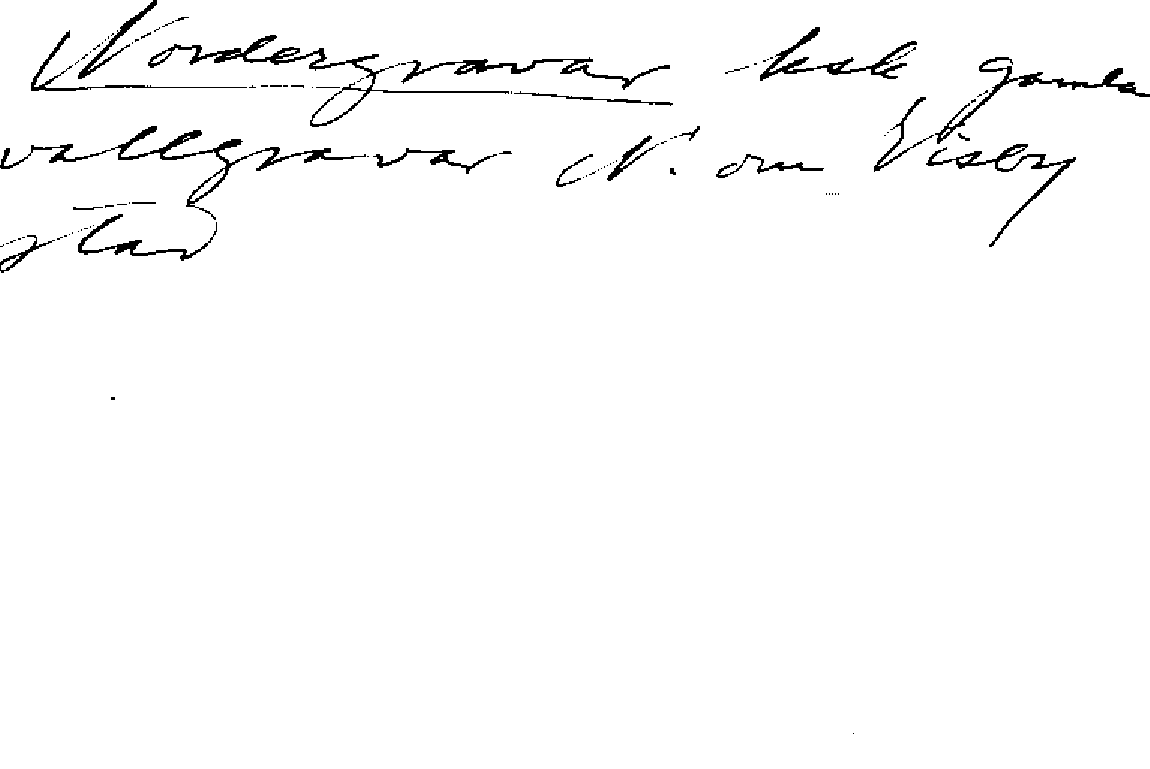 Nordergravar ksk gamla
vallgravar N. om Visby
stad